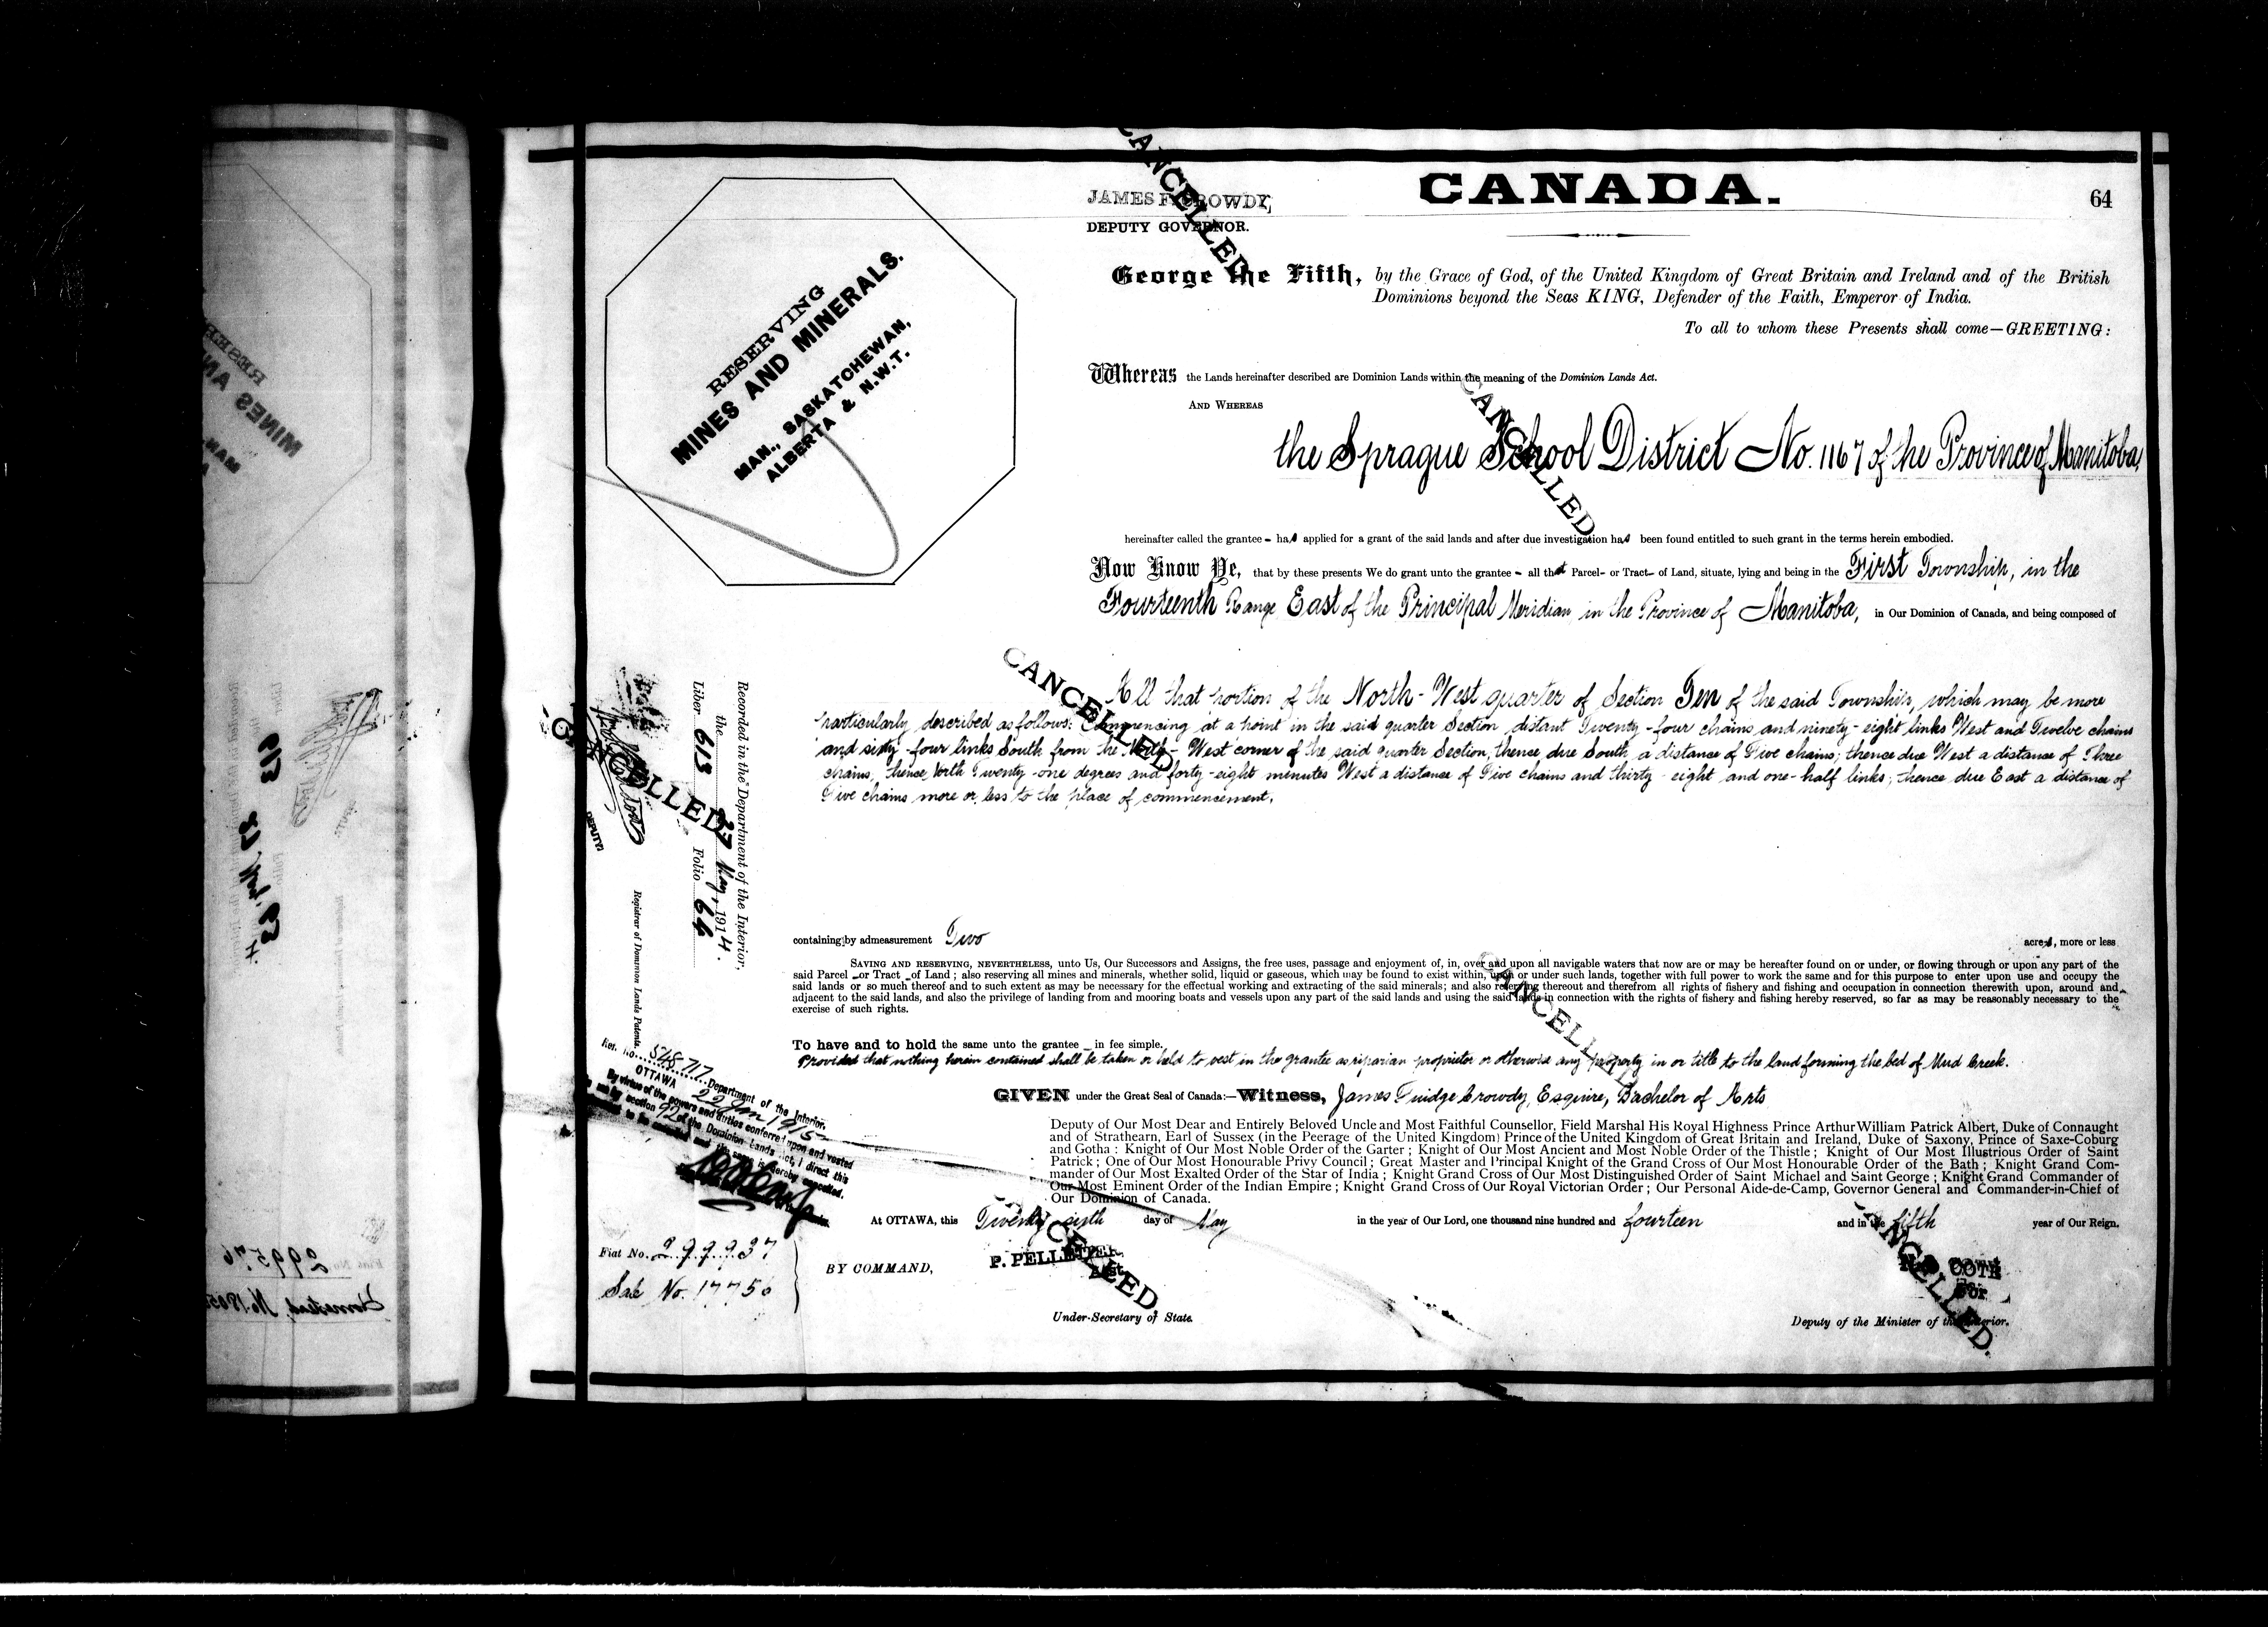 CANADA.
64
JAMES F. CROWDY,
DEPUTY GOVERNOR.
CANCELLED
RESERVING
MINES AND MINERALS.
MAN., SASKATCHEWAN,
ALBERTA & N.W.T.
George the Fifth, by the Grace of God, of the United Kingdom of Great Britain and Ireland and of the British
Dominions beyond the Seas KING, Defender of the Faith, Emperor of India.
To all to whom these Presents shall come—GREETING:
Whereas the Lands hereinafter described are Dominion Lands within the meaning of the Dominion Lands Act.
AND WHEREAS
CANCELLED
the Sprague School District No. 1167 of the Province of Manitoba,
hereinafter called the grantee - has applied for a grant of the said lands and after due investigation has been found entitled to such grant in the terms herein embodied.
Now Know Ye, that by these presents We do grant unto the grantee - all that Parcel- or Tract- of Land, situate, lying and being in the First Township, in the
Fourteenth Range East of the Principal Meridian in the Province of Manitoba, in Our Dominion of Canada, and being composed of
CANCELLED
All that portion of the North-West quarter of Section Ten of the said Township, which may be more
particularly described as follows: Commencing at a point in the said quarter Section distant Twenty-four chains and ninety-eight links West and Twelve chains
and sixty-four links South from the North-West corner of the said quarter Section, thence due South a distance of Five chains; thence due West a distance of Three
chains, thence North Twenty-one degrees and forty-eight minutes West a distance of Five chains and thirty-eight and one-half links; thence due East a distance of
Five chains more or less to the place of commencement.
Recorded in the Department of the Interior,
the 27 May, 1914.
Liber 613 Folio 64
CANCELLED
DEPUTY
Registrar of Dominion Lands Patents.
containing by admeasurement Two acres, more or less
SAVING AND RESERVING, NEVERTHELESS, unto Us, Our Successors and Assigns, the free uses, passage and enjoyment of, in, over and upon all navigable waters that now are or may be hereafter found on or under, or flowing through or upon any part of the
said Parcel - or Tract - of Land; also reserving all mines and minerals, whether solid, liquid or gaseous, which may be found to exist within, upon or under such lands, together with full power to work the same and for this purpose to enter upon use and occupy the
said lands or so much thereof and to such extent as may be necessary for the effectual working and extracting of the said minerals; and also reserving thereout and therefrom all rights of fishery and fishing and occupation in connection therewith upon, around and
adjacent to the said lands, and also the privilege of landing from and mooring boats and vessels upon any part of the said lands and using the said lands in connection with the rights of fishery and fishing hereby reserved, so far as may be reasonably necessary to the
exercise of such rights.
CANCELLED
To have and to hold the same unto the grantee - in fee simple.
Provided that nothing herein contained shall be taken or held to vest in the grantee as riparian proprietor or otherwise any property in or title to the land forming the bed of Mud Creek.
Ref. No. 548717 Department of the Interior.
OTTAWA 22 Jan 1915
By virtue of the powers and duties conferred upon and vested
in me by section 92 of the Dominion Lands Act, I direct this
to be cancelled and the same is hereby cancelled.
GIVEN under the Great Seal of Canada:—Witness, James Fuidge Crowdy, Esquire, Bachelor of Arts
Deputy of Our Most Dear and Entirely Beloved Uncle and Most Faithful Counsellor, Field Marshal His Royal Highness Prince Arthur William Patrick Albert, Duke of Connaught
and of Strathearn, Earl of Sussex (in the Peerage of the United Kingdom) Prince of the United Kingdom of Great Britain and Ireland, Duke of Saxony, Prince of Saxe-Coburg
and Gotha: Knight of Our Most Noble Order of the Garter; Knight of Our Most Ancient and Most Noble Order of the Thistle; Knight of Our Most Illustrious Order of Saint
Patrick; One of Our Most Honourable Privy Council; Great Master and Principal Knight of the Grand Cross of Our Most Honourable Order of the Bath; Knight Grand Com-
mander of Our Most Exalted Order of the Star of India; Knight Grand Cross of Our Most Distinguished Order of Saint Michael and Saint George; Knight Grand Commander of
Our Most Eminent Order of the Indian Empire; Knight Grand Cross of Our Royal Victorian Order; Our Personal Aide-de-Camp, Governor General and Commander-in-Chief of
Our Dominion of Canada.
At OTTAWA, this Twenty sixth day of May in the year of Our Lord, one thousand nine hundred and fourteen and in the fifth year of Our Reign.
Fiat No. 299937
Sale No. 17750
BY COMMAND,
P. PELLETIER,
Act
CANCELLED
Under-Secretary of State.
COTE
For
CANCELLED
Deputy of the Minister of the Interior.